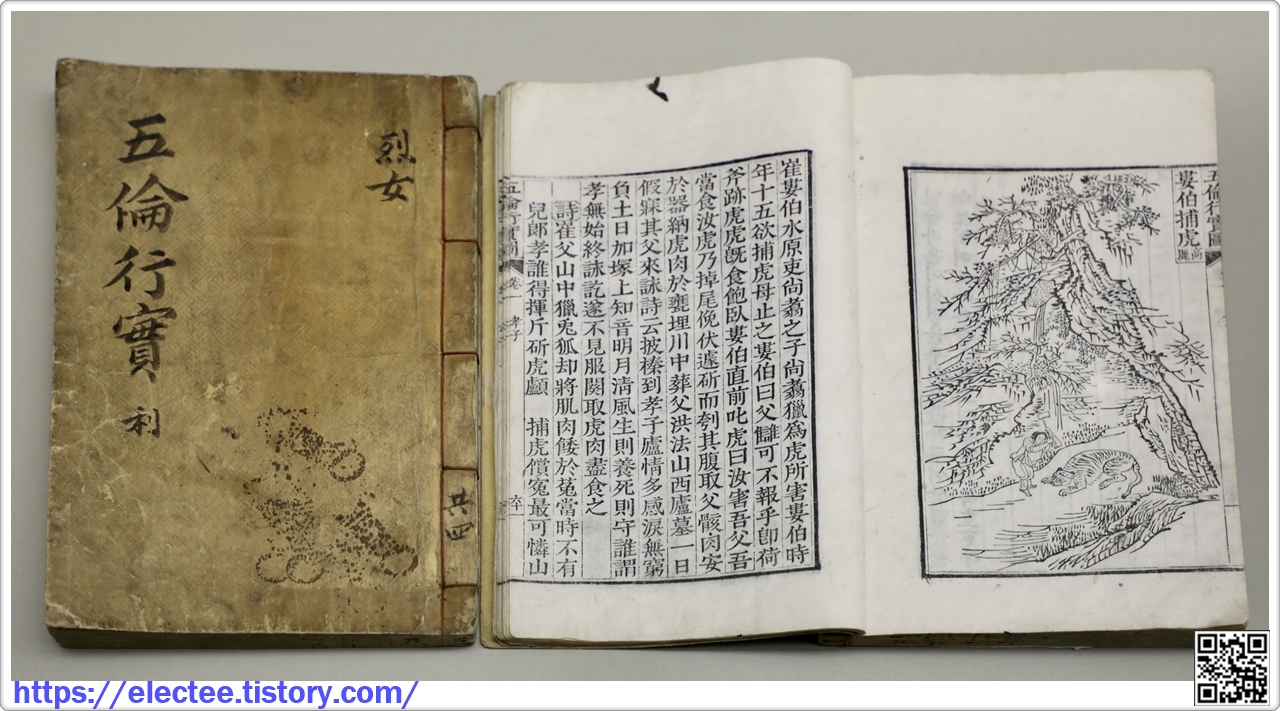 五倫行實 利
烈女
共四
五倫行實圖
婁伯捕虎 高麗
崔婁伯水原吏尙翥之子尙翥獵為虎所害婁伯時
年十五欲捕虎母止之婁伯曰父讎可不報乎卽荷
斧跡虎虎旣食飽臥婁伯直前叱虎曰汝害吾父吾
當食汝虎乃掉尾俛伏遽斫而刳其腹取父骸肉安
於器納虎肉於甕埋川中葬父洪法山西廬墓一日
假寐其父來詠詩云披榛到孝子廬情多感淚無窮
負土日加塚上知音明月淸風生則養死則守誰謂
孝無始終詠訖遂不見服闋取虎肉盡食之
詩崔父山中獵兎狐却將肌肉餧於菟當時不有
兒郎孝誰得揮斤斫虎顱 捕虎償寃最可憐山
五倫行實圖 卷一 孝子
https://electee.tistory.com/